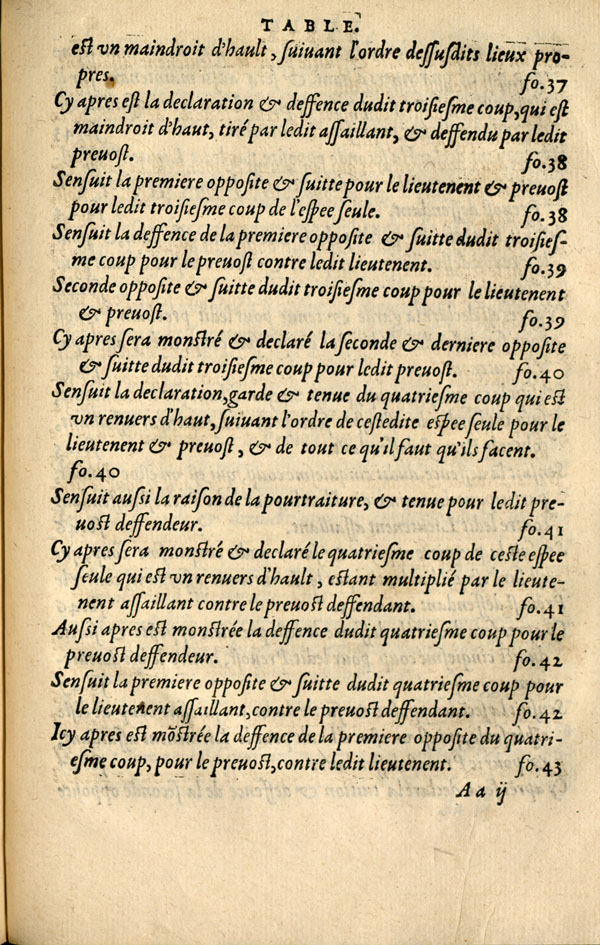 TABLE.
est vn maindroit d'hault, ſuiuant l'ordre deſſuſdits lieux pro-
pres. fo.37
Cy apres est la declaration & deffence dudit troiſieſme coup, qui est
maindroit d'haut, tiré par ledit aſſaillant, & deffendu par ledit
preuost. fo.38
Senſuit la premiere oppoſite & ſuitte pour le lieutenent & preuost
pour ledit troiſieſme coup de l'eſpee ſeule. fo.38
Senſuit la deffence de la premiere oppoſite & ſuitte dudit troiſieſ-
me coup pour le preuost contre ledit lieutenent. fo.39
Seconde oppoſite & ſuitte dudit troiſieſme coup pour le lieutenent
& preuost. fo.39
Cy apres ſera monſtré & declaré la ſeconde & derniere oppoſite
& ſuitte dudit troiſieſme coup pour ledit preuost. fo.40
Senſuit la declaration, garde & tenue du quatrieſme coup qui est
vn renuers d'haut, ſuiuant l'ordre de ceſtedite eſpee ſeule pour le
lieutenent & preuost, & de tout ce qu'il faut qu'ils facent.
fo.40
Senſuit auſſi la raiſon de la pourtraiture, & tenue pour ledit pre-
uost deffendeur. fo.41
Cy apres ſera monſtré & declaré le quatrieſme coup de ceſte eſpee
ſeule qui est vn renuers d'hault, estant multiplié par le lieute-
nent aſſaillant contre le preuost deffendant. fo.41
Auſſi apres est monſtrée la deffence dudit quatrieſme coup pour le
preuost deffendeur. fo.42
Senſuit la premiere oppoſite & ſuitte dudit quatrieſme coup pour
le lieutenent aſſaillant, contre le preuost deffendant. fo.42
Icy apres est mõstrée la deffence de la premiere oppoſite du quatri-
eſme coup, pour le preuost, contre ledit lieutenent. fo.43
Aa ij